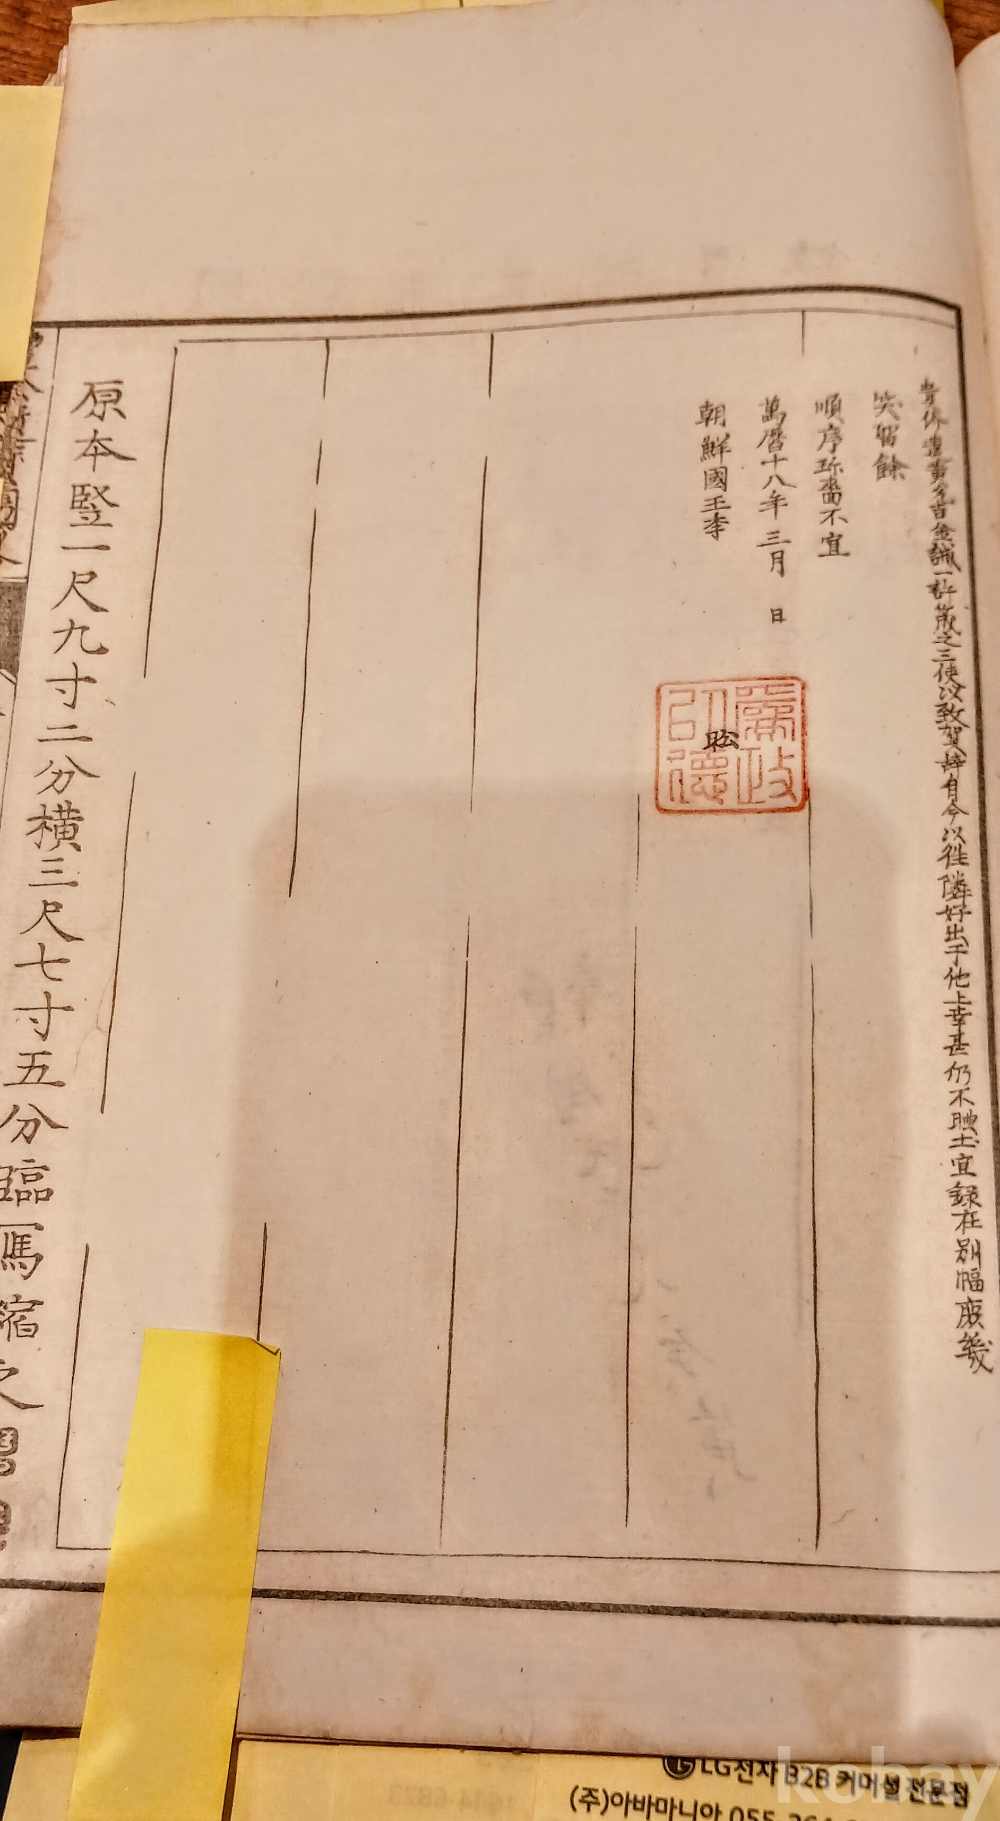 書俾遣黃允吉金誠一許筬之三使以致賀辭自今以後隣好出于他上幸甚仍不腆土宜録在別幅庶幾
笑留餘
順序珎嗇不宣
萬曆十八年三月 日
朝鮮國王李
昖
為政以德
原本竪一尺九寸二分橫三尺七寸五分臨寫縮之
LG전자 B2B 커머셜 전문점
(주)아바마니아 055
kobay